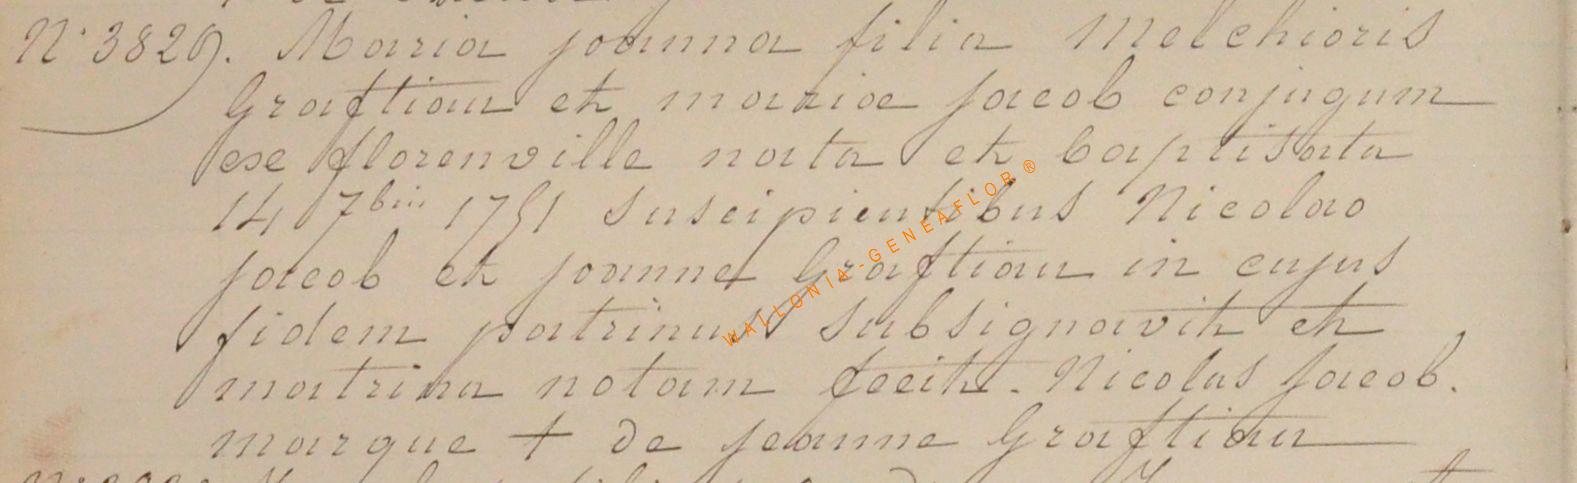 N° 3829. Maria joanna filia Melchioris
Graftiau et mariae jacob conjugum
ex florenville nata et baptisata
14 7bris 1751 suscipientibus Nicolao
jacob et joanne Graftiau in cujus
fidem patrinus subsignavit et
matrina notam fecit. Nicolas jacob.
marque + de jeanne Graftiau
WALLONIA-GENEAFLOR ®